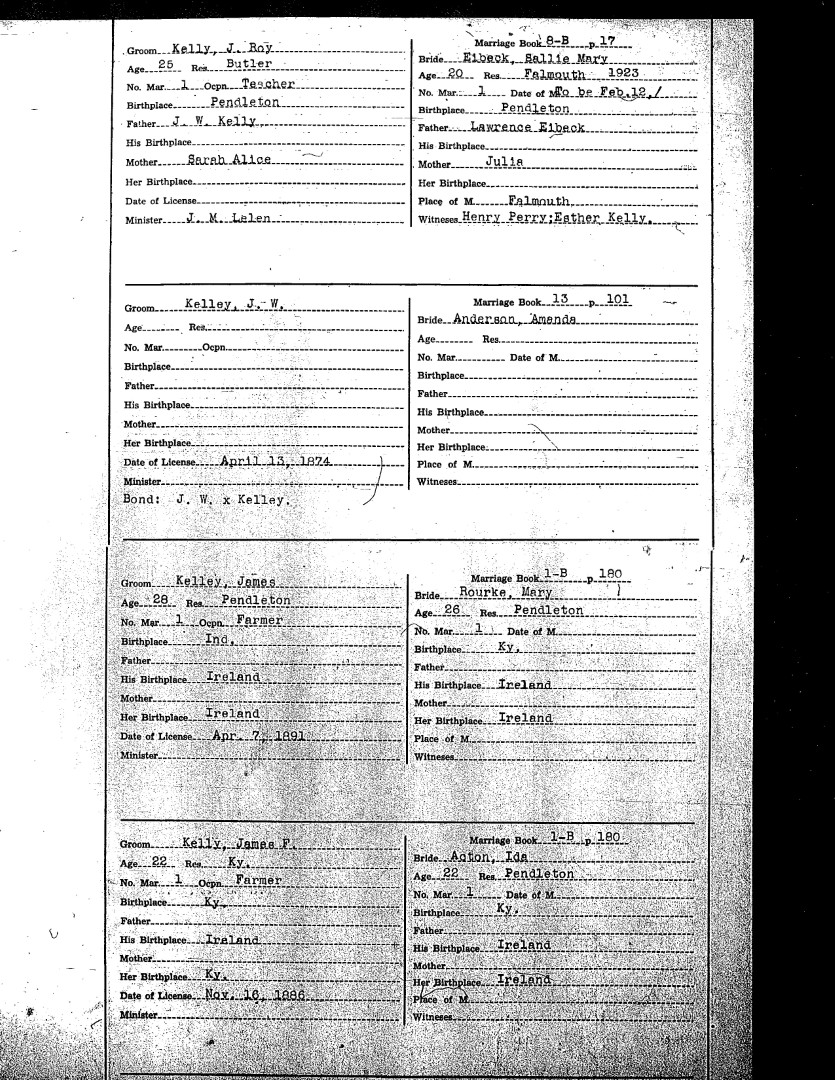 Groom Kelly, J. Roy
Age 25 Res. Butler
No. Mar. 1 Ocpn. Teacher
Birthplace Pendleton
Father J. W. Kelly
His Birthplace
Mother Sarah Alice
Her Birthplace
Date of License
Minister J. M. Lelen
Marriage Book 8-B p. 17
Bride Eibeck, Sallie Mary
Age 20 Res Falmouth 1923
No. Mar. 1 Date of M. To be Feb.12,/
Birthplace Pendleton
Father Lawrence Eibeck
His Birthplace
Mother Julia
Her Birthplace
Place of M. Falmouth
Witnesses Henry Perry;Esther Kelly.
Groom Kelley, J. W.
Age Res.
No. Mar. Ocpn.
Birthplace
Father
His Birthplace
Mother
Her Birthplace
Date of License April 13, 1874
Minister
Bond: J. W. x Kelley.
Marriage Book 13 p. 101
Bride Anderson, Amanda
Age Res.
No. Mar. Date of M.
Birthplace
Father
His Birthplace
Mother
Her Birthplace
Place of M.
Witnesses
Groom Kelley, James
Age 28 Res. Pendleton
No. Mar. 1 Ocpn. Farmer
Birthplace Ind.
Father
His Birthplace Ireland
Mother
Her Birthplace Ireland
Date of License Apr. 7, 1891
Minister
Marriage Book 1-B p. 180
Bride Rourke, Mary
Age 26 Res. Pendleton
No. Mar. 1 Date of M.
Birthplace Ky.
Father
His Birthplace Ireland
Mother
Her Birthplace Ireland
Place of M.
Witnesses
Groom Kelly, James F.
Age 22 Res. Ky.
No. Mar. 1 Ocpn. Farmer
Birthplace Ky.
Father
His Birthplace Ireland
Mother
Her Birthplace Ky.
Date of License Nov. 16, 1886
Minister
Marriage Book 1-B p. 180
Bride Acton, Ida
Age 22 Res. Pendleton
No. Mar. 1 Date of M.
Birthplace Ky.
Father
His Birthplace Ireland
Mother
Her Birthplace Ireland
Place of M.
Witnesses